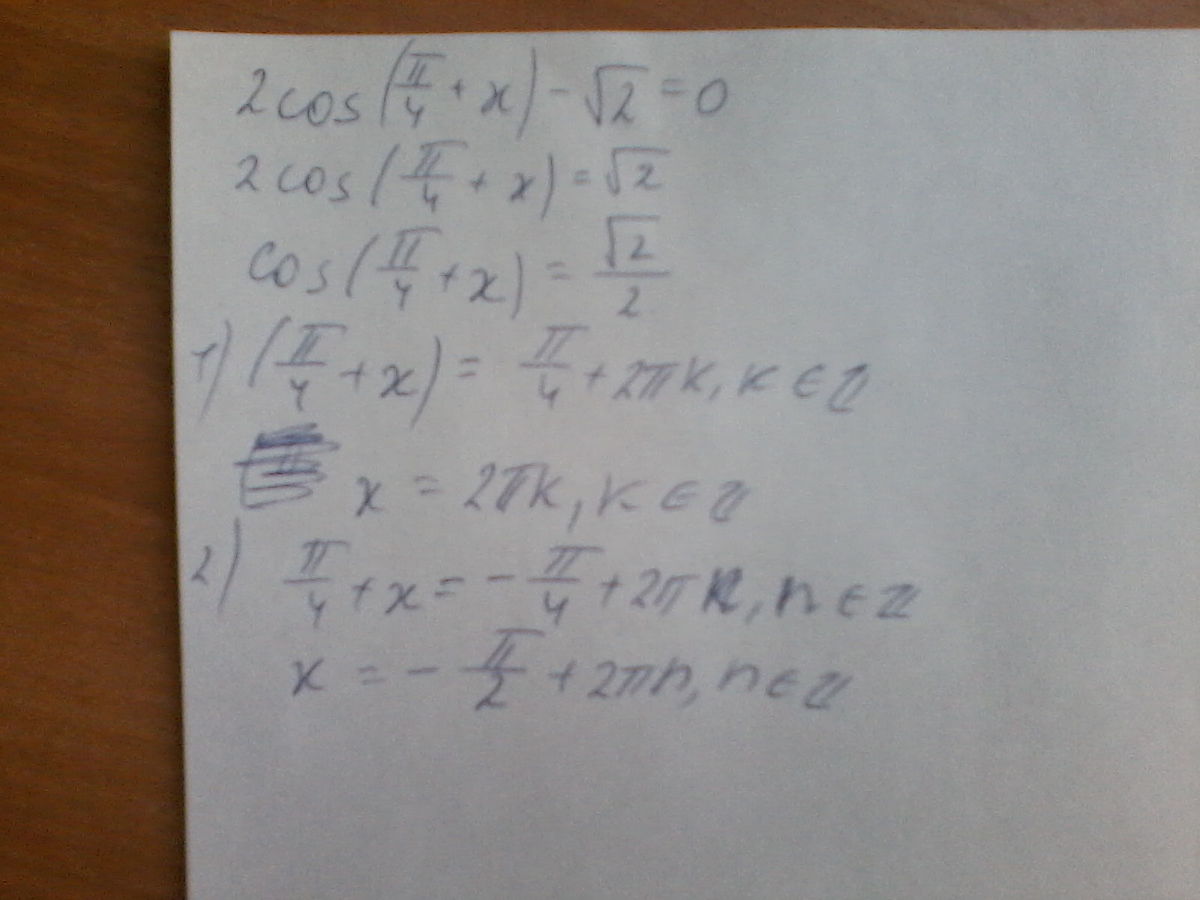 2cos(π/4 + x) - √2 = 0
2cos(π/4 + x) = √2
cos(π/4 + x) = √2/2
1) (π/4 + x) = π/4 + 2πk, k ∈ Z
x = 2πk, k ∈ Z
2) π/4 + x = - π/4 + 2πn, n ∈ Z
x = - π/2 + 2πn, n ∈ Z